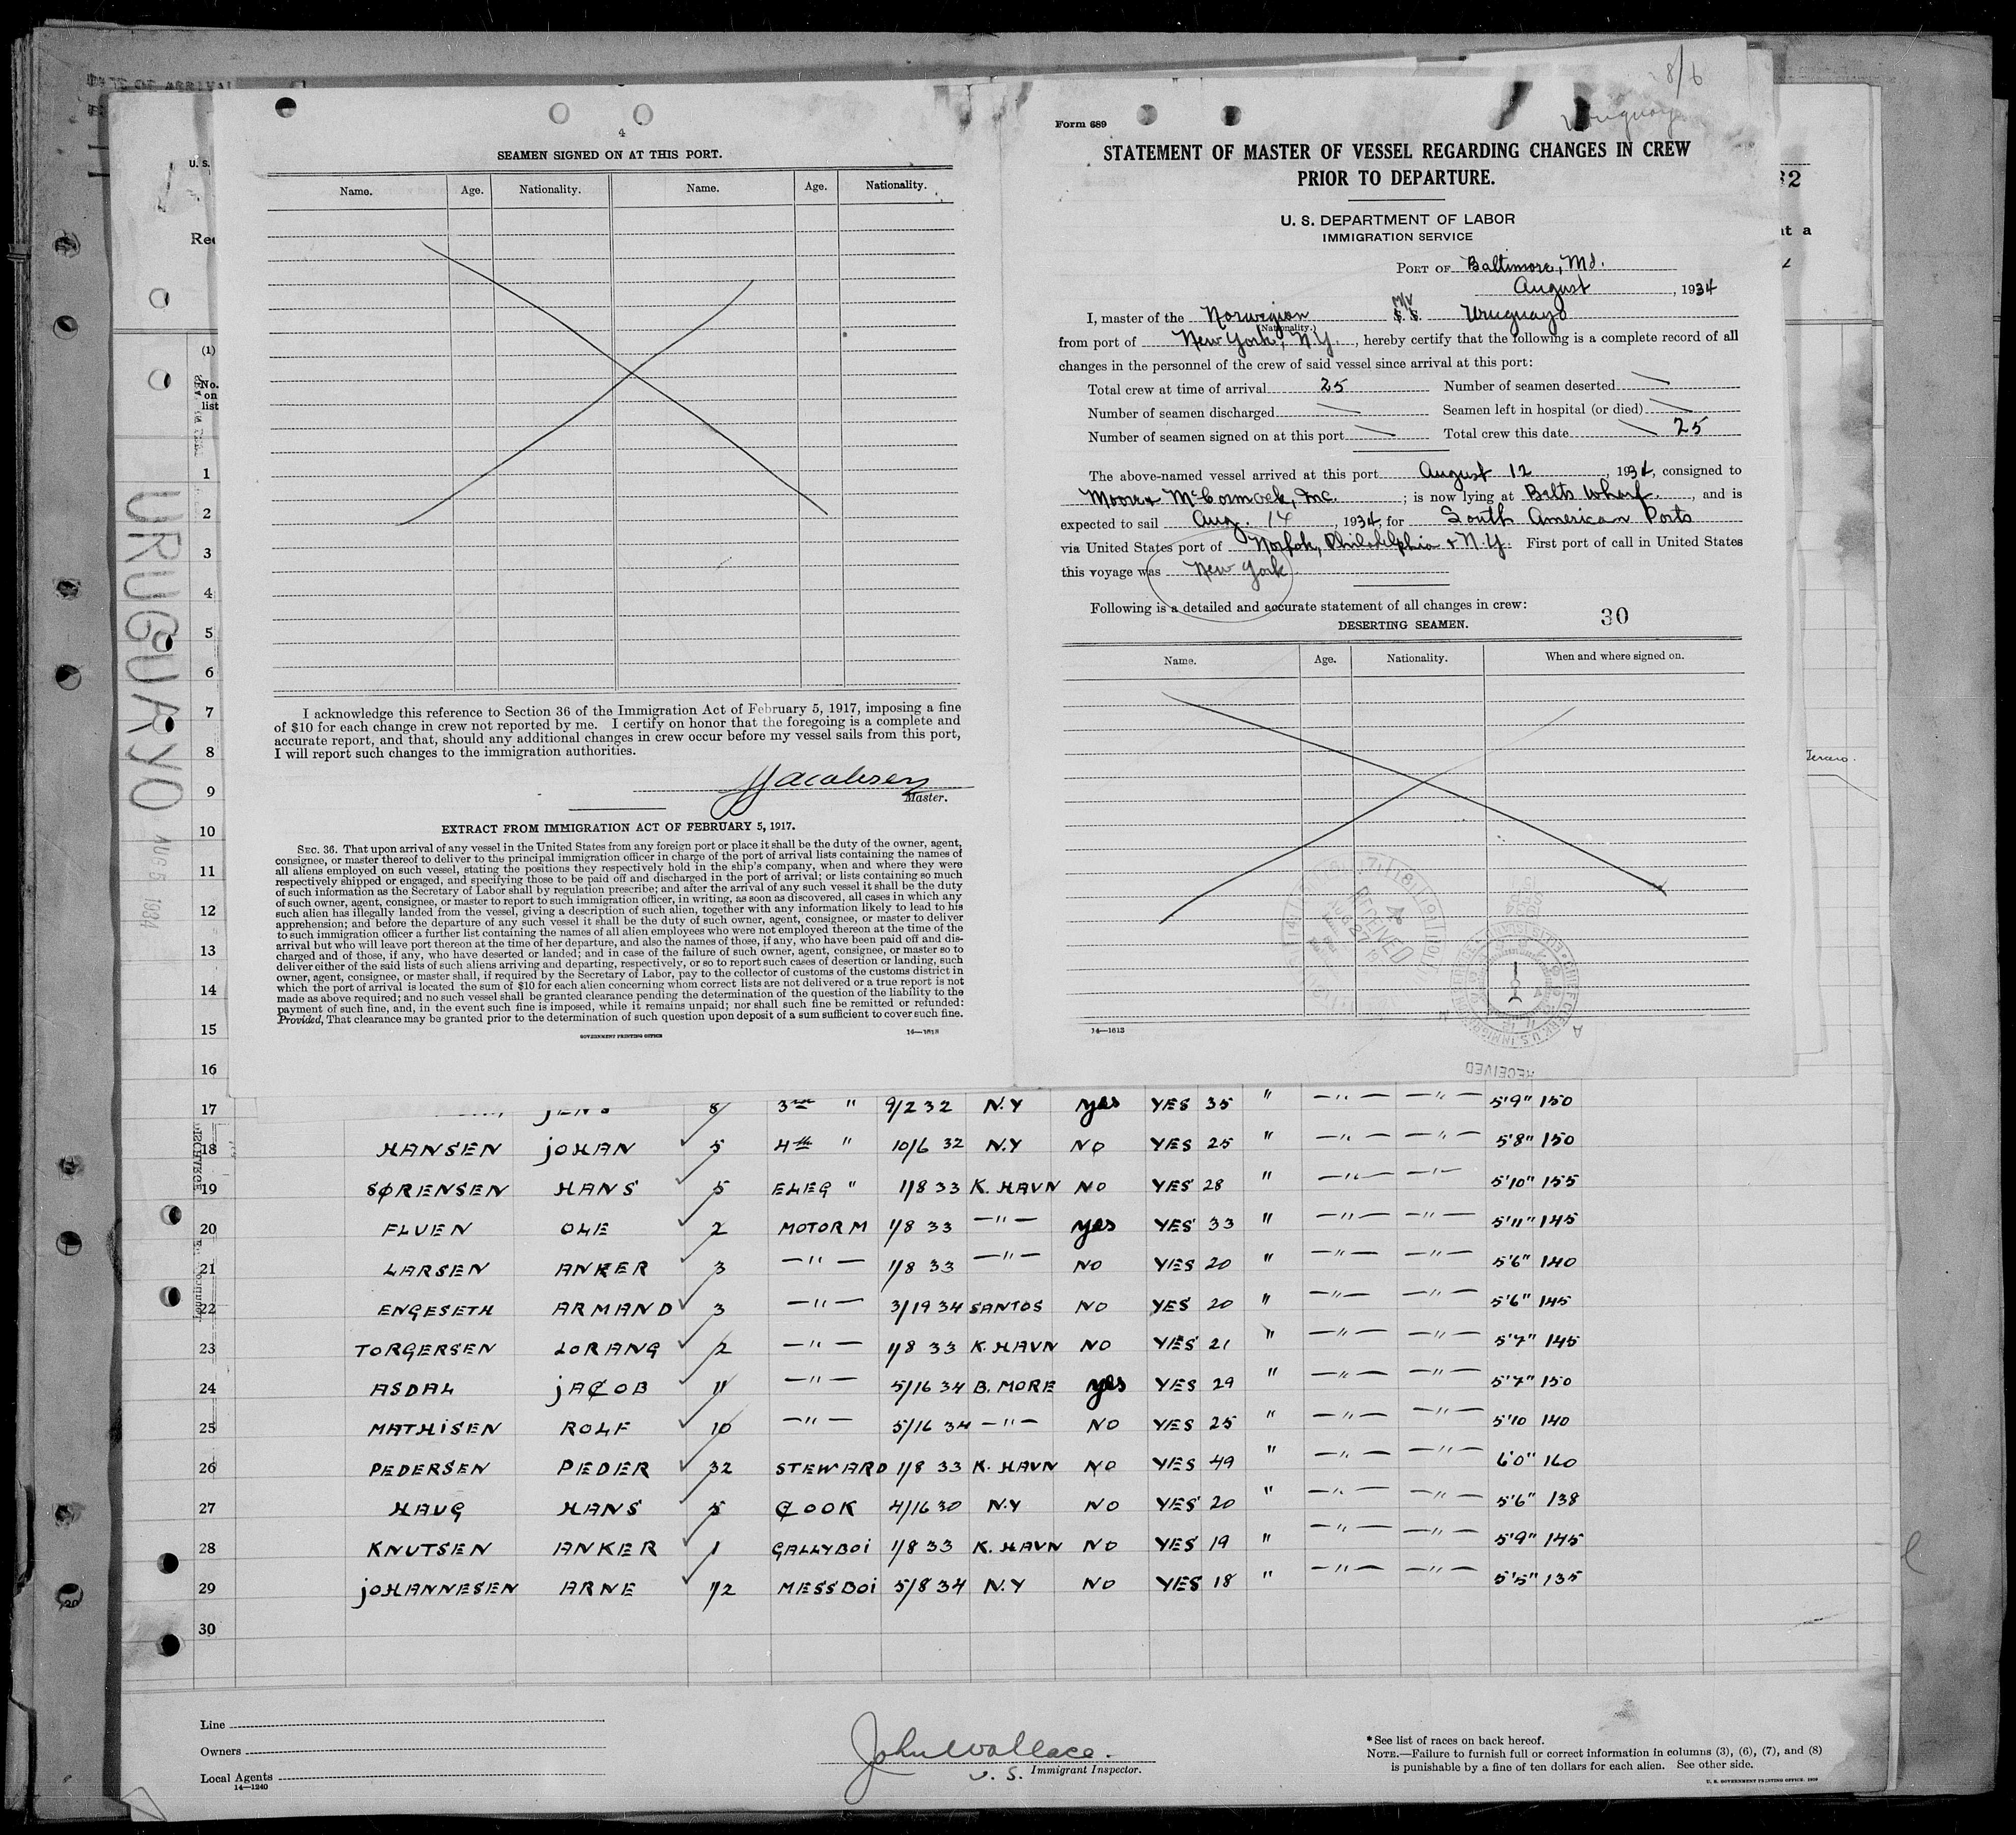 4
SEAMEN SIGNED ON AT THIS PORT.
Name. Age. Nationality. Name. Age. Nationality.
I acknowledge this reference to Section 36 of the Immigration Act of February 5, 1917, imposing a fine
of $10 for each change in crew not reported by me. I certify on honor that the foregoing is a complete and
accurate report, and that, should any additional changes in crew occur before my vessel sails from this port,
I will report such changes to the immigration authorities.
Jacobsen
Master.
EXTRACT FROM IMMIGRATION ACT OF FEBRUARY 5, 1917.
SEC. 36. That upon arrival of any vessel in the United States from any foreign port or place it shall be the duty of the owner, agent,
consignee, or master thereof to deliver to the principal immigration officer in charge of the port of arrival lists containing the names of
all aliens employed on such vessel, stating the positions they respectively hold in the ship's company, when and where they were
respectively shipped or engaged, and specifying those to be paid off and discharged in the port of arrival; or lists containing so much
of such information as the Secretary of Labor shall by regulation prescribe; and after the arrival of any such vessel it shall be the duty
of such owner, agent, consignee, or master to report to such immigration officer, in writing, as soon as discovered, all cases in which any
such alien has illegally landed from the vessel, giving a description of such alien, together with any information likely to lead to his
apprehension; and before the departure of any such vessel it shall be the duty of such owner, agent, consignee, or master to deliver
to such immigration officer a further list containing the names of all alien employees who were not employed thereon at the time of the
arrival but who will leave port thereon at the time of her departure, and also the names of those, if any, who have been paid off and dis-
charged and of those, if any, who have deserted or landed; and in case of the failure of such owner, agent, consignee, or master so to
deliver either of the said lists of such aliens arriving and departing, respectively, or so to report such cases of desertion or landing, such
owner, agent, consignee, or master shall, if required by the Secretary of Labor, pay to the collector of customs of the customs district in
which the port of arrival is located the sum of $10 for each alien concerning whom correct lists are not delivered or a true report is not
made as above required; and no such vessel shall be granted clearance pending the determination of the question of the liability to the
payment of such fine, and, in the event such fine is imposed, while it remains unpaid; nor shall such fine be remitted or refunded:
Provided, That clearance may be granted prior to the determination of such question upon deposit of a sum sufficient to cover such fine.
GOVERNMENT PRINTING OFFICE 14—1613
8/6
Uruguayo
Form 689
STATEMENT OF MASTER OF VESSEL REGARDING CHANGES IN CREW
PRIOR TO DEPARTURE.
U. S. DEPARTMENT OF LABOR
IMMIGRATION SERVICE
PORT OF Baltimore, Md.
August, 1934
I, master of the Norwegian M/V S. S. Uruguayo
(Nationality.)
from port of New York, N.Y., hereby certify that the following is a complete record of all
changes in the personnel of the crew of said vessel since arrival at this port:
Total crew at time of arrival 25 Number of seamen deserted
Number of seamen discharged Seamen left in hospital (or died)
Number of seamen signed on at this port Total crew this date 25
The above-named vessel arrived at this port August 12, 1934, consigned to
Moore & McCormack, Inc.; is now lying at Belts Wharf, and is
expected to sail Aug. 14, 1934, for South American Ports
via United States port of Norfok, Philadelphia & N.Y. First port of call in United States
this voyage was New York
Following is a detailed and accurate statement of all changes in crew:
DESERTING SEAMEN. 30
Name. Age. Nationality. When and where signed on.
RECEIVED
14—1613
RECEIVED
U. S.
32
(1)
No. on list
URUGUAYO AUG 5 1934
1
2
3
4
5
6
7
8
9
10
11
12
13
14
15
16
17 8 3rd " 9/2 32 N.Y yes YES 35 " —"— —"— 5'9" 150
18 HANSEN JOHAN 5 4th " 10/6 32 N.Y NO YES 25 " —"— —"— 5'8" 150
19 SØRENSEN HANS 5 ELEG " 1/8 33 K. HAVN NO YES 28 " —"— —"— 5'10" 155
20 FLUEN OLE 2 MOTOR M 1/8 33 —"— yes YES 33 " —"— —"— 5'11" 145
21 LARSEN ANKER 3 —"— 1/8 33 —"— NO YES 20 " —"— —"— 5'6" 140
22 ENGESETH ARMAND 3 —"— 3/19 34 SANTOS NO YES 20 " —"— —"— 5'6" 145
23 TORGERSEN LORANG 2 —"— 1/8 33 K. HAVN NO YES 21 " —"— —"— 5'7" 145
24 ASDAL JACOB 11 —"— 5/16 34 B. MORE yes YES 29 " —"— —"— 5'7" 150
25 MATHISEN ROLF 10 —"— 5/16 34 —"— NO YES 25 " —"— —"— 5'10 140
26 PEDERSEN PEDER 32 STEWARD 1/8 33 K. HAVN NO YES 49 " —"— —"— 6'0" 160
27 HAUG HANS 5 COOK 4/16 30 N.Y NO YES 20 " —"— —"— 5'6" 138
28 KNUTSEN ANKER 1 GALLYBOI 1/8 33 K. HAVN NO YES 19 " —"— —"— 5'9" 145
29 JOHANNESEN ARNE 1/2 MESSBOI 5/8 34 N.Y NO YES 18 " —"— —"— 5'5" 135
30
Line
Owners
Local Agents
14—1240
John Wallace.
U. S. Immigrant Inspector.
*See list of races on back hereof.
NOTE.—Failure to furnish full or correct information in columns (3), (6), (7), and (8)
is punishable by a fine of ten dollars for each alien. See other side.
U. S. GOVERNMENT PRINTING OFFICE